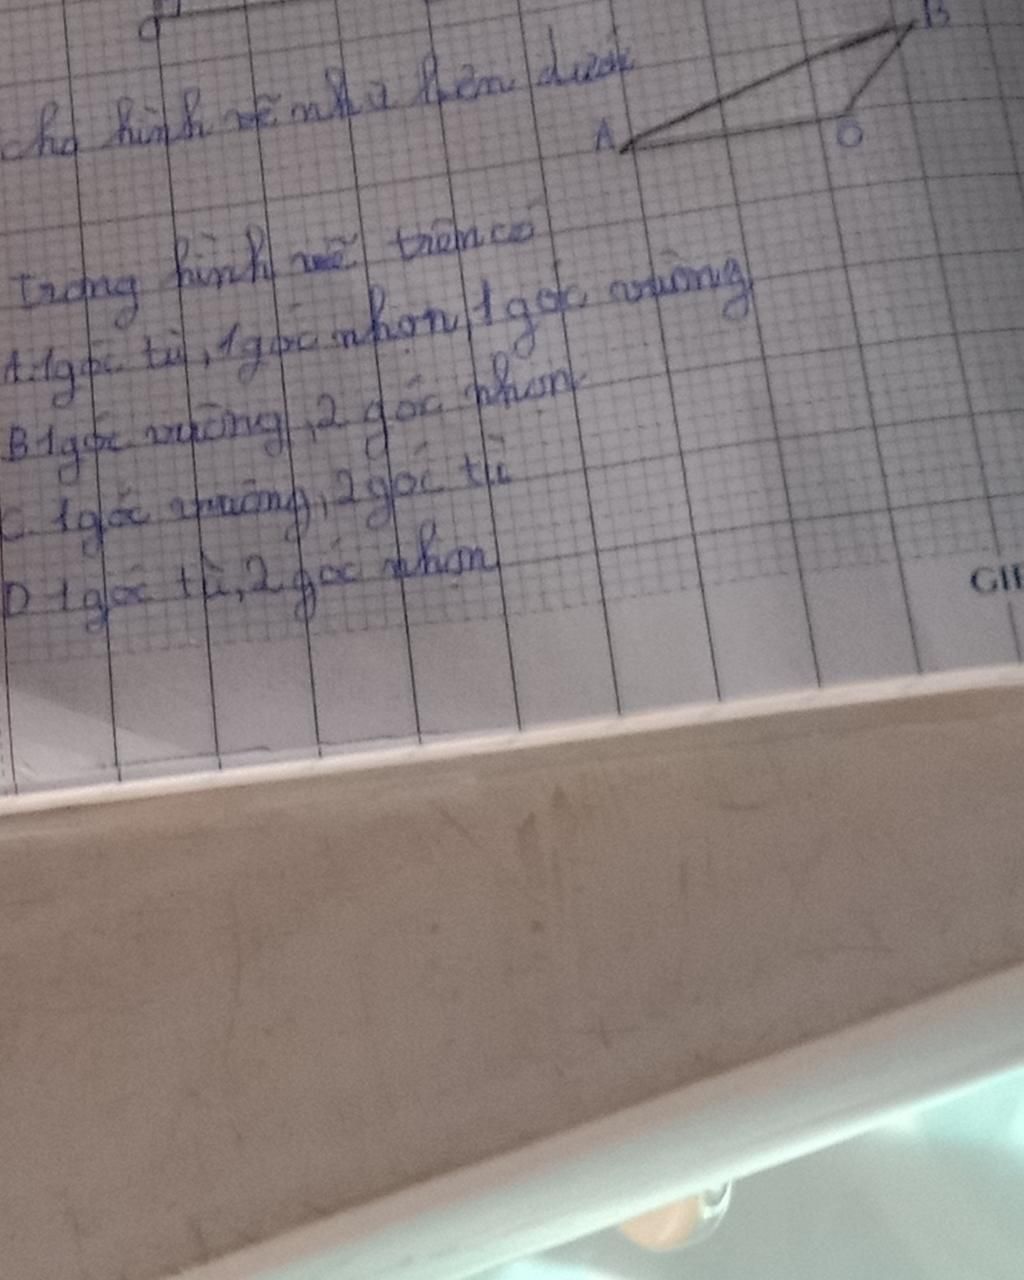 cho hình vẽ như bên dưới
A
B
O
trong hình vẽ trên có
A. 1 góc tù, 1 góc nhọn, 1 góc vuông
B 1 góc vuông, 2 góc nhọn
C. 1 góc vuông, 2 góc tù
D 1 góc tù, 2 góc nhọn